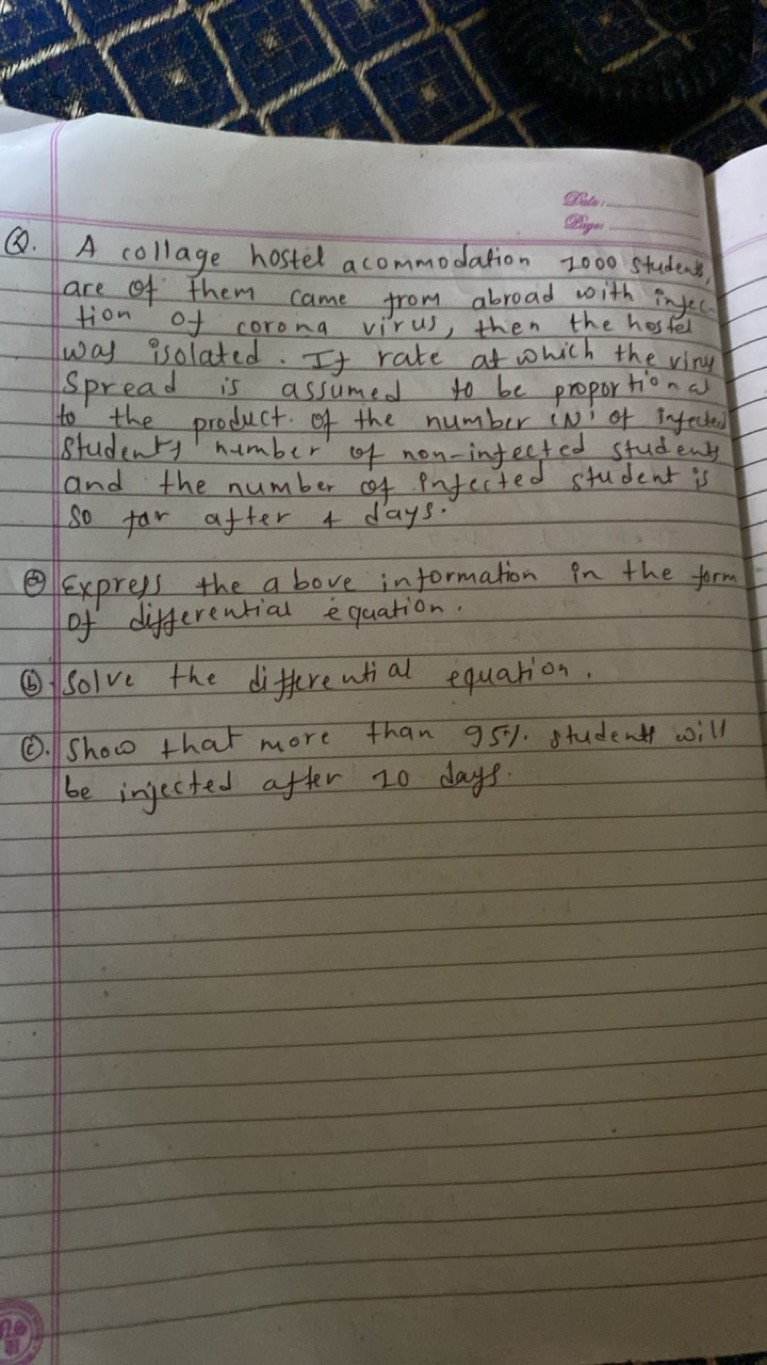 Date:
Page:
Q. A collage hostel acommodation 1000 students,
are of them came from abroad with injec-
tion of corona virus, then the hostel
was isolated. If rate at which the virus
spread is assumed to be proportional
to the product of the number 'N' of infected
students, number of non-infected students
and the number of infected student is
so far after 4 days.
(a) Express the above information in the form
of differential equation.
(b). Solve the differential equation.
(c). Show that more than 95% students will
be injected after 10 days.